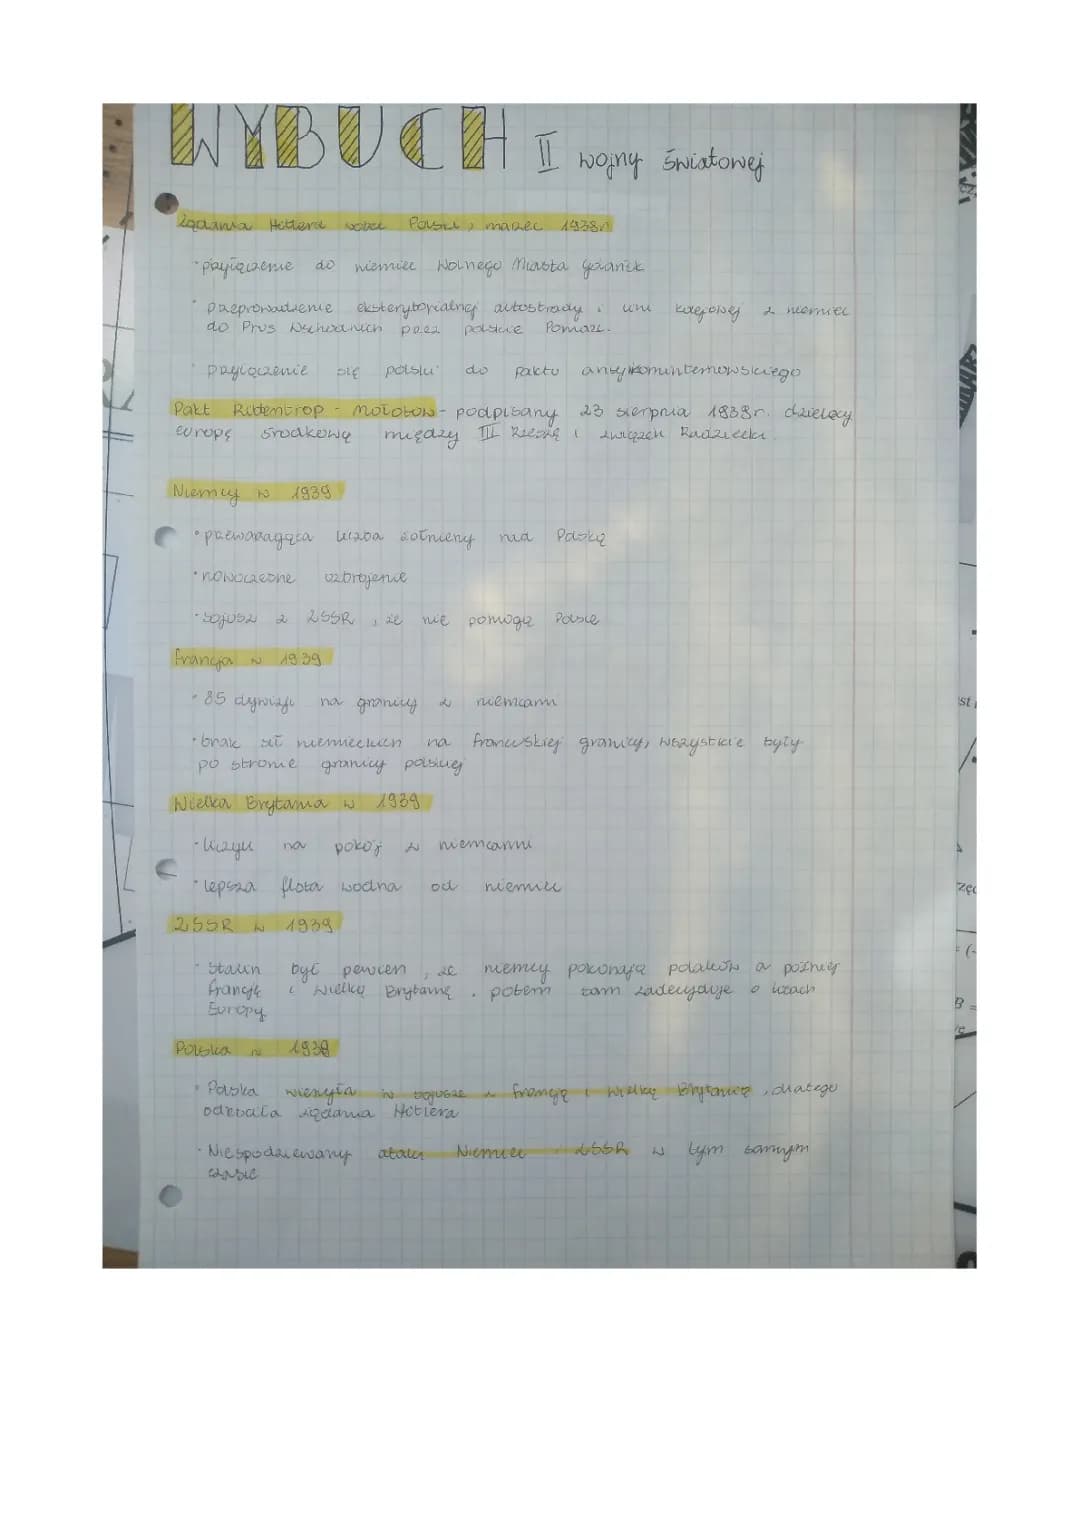 WYBUCH II wojny światowej
Żądania Hitlera wobec Polski, marzec 1939r.
· przyłączenie do niemiec Wolnego Miasta Gdańsk
· przeprowadzenie eksterytorialnej autostrady i linii kolejowej z niemiec
do Prus Wschodnich przez polskie Pomorze.
· przyłączenie się polski do paktu antykominternowskiego
Pakt Ribentrop - Mołotow - podpisany 23 sierpnia 1939r. dzielący
europę środkową między III Rzeszę i związek Radziecki.
Niemcy w 1939
· przeważająca liczba żołnierzy nad Polską
· nowoczesne uzbrojenie
· sojusz z ZSSR, że nie pomogą Polsce
francja w 1939
· 85 dywizji na granicy z niemcami
· brak sił niemieckich na francuskiej granicy, wszystkie były
po stronie granicy polskiej
Wielka Brytania w 1939
· liczyli na pokój z niemcami
· lepsza flota wodna od niemiec
ZSSR w 1939
· Stalin był pewien, że niemcy pokonają polaków a później
francję i Wielką Brytanię. potem sam zadecyduje o losach
Europy
Polska w 1939
· Polska wierzyła w sojusze z francją i Wielką Brytanią, dlatego
odrzuca żądania Hitlera
· Niespodziewany ataki Niemiec i ZSSR w tym samym
czasie